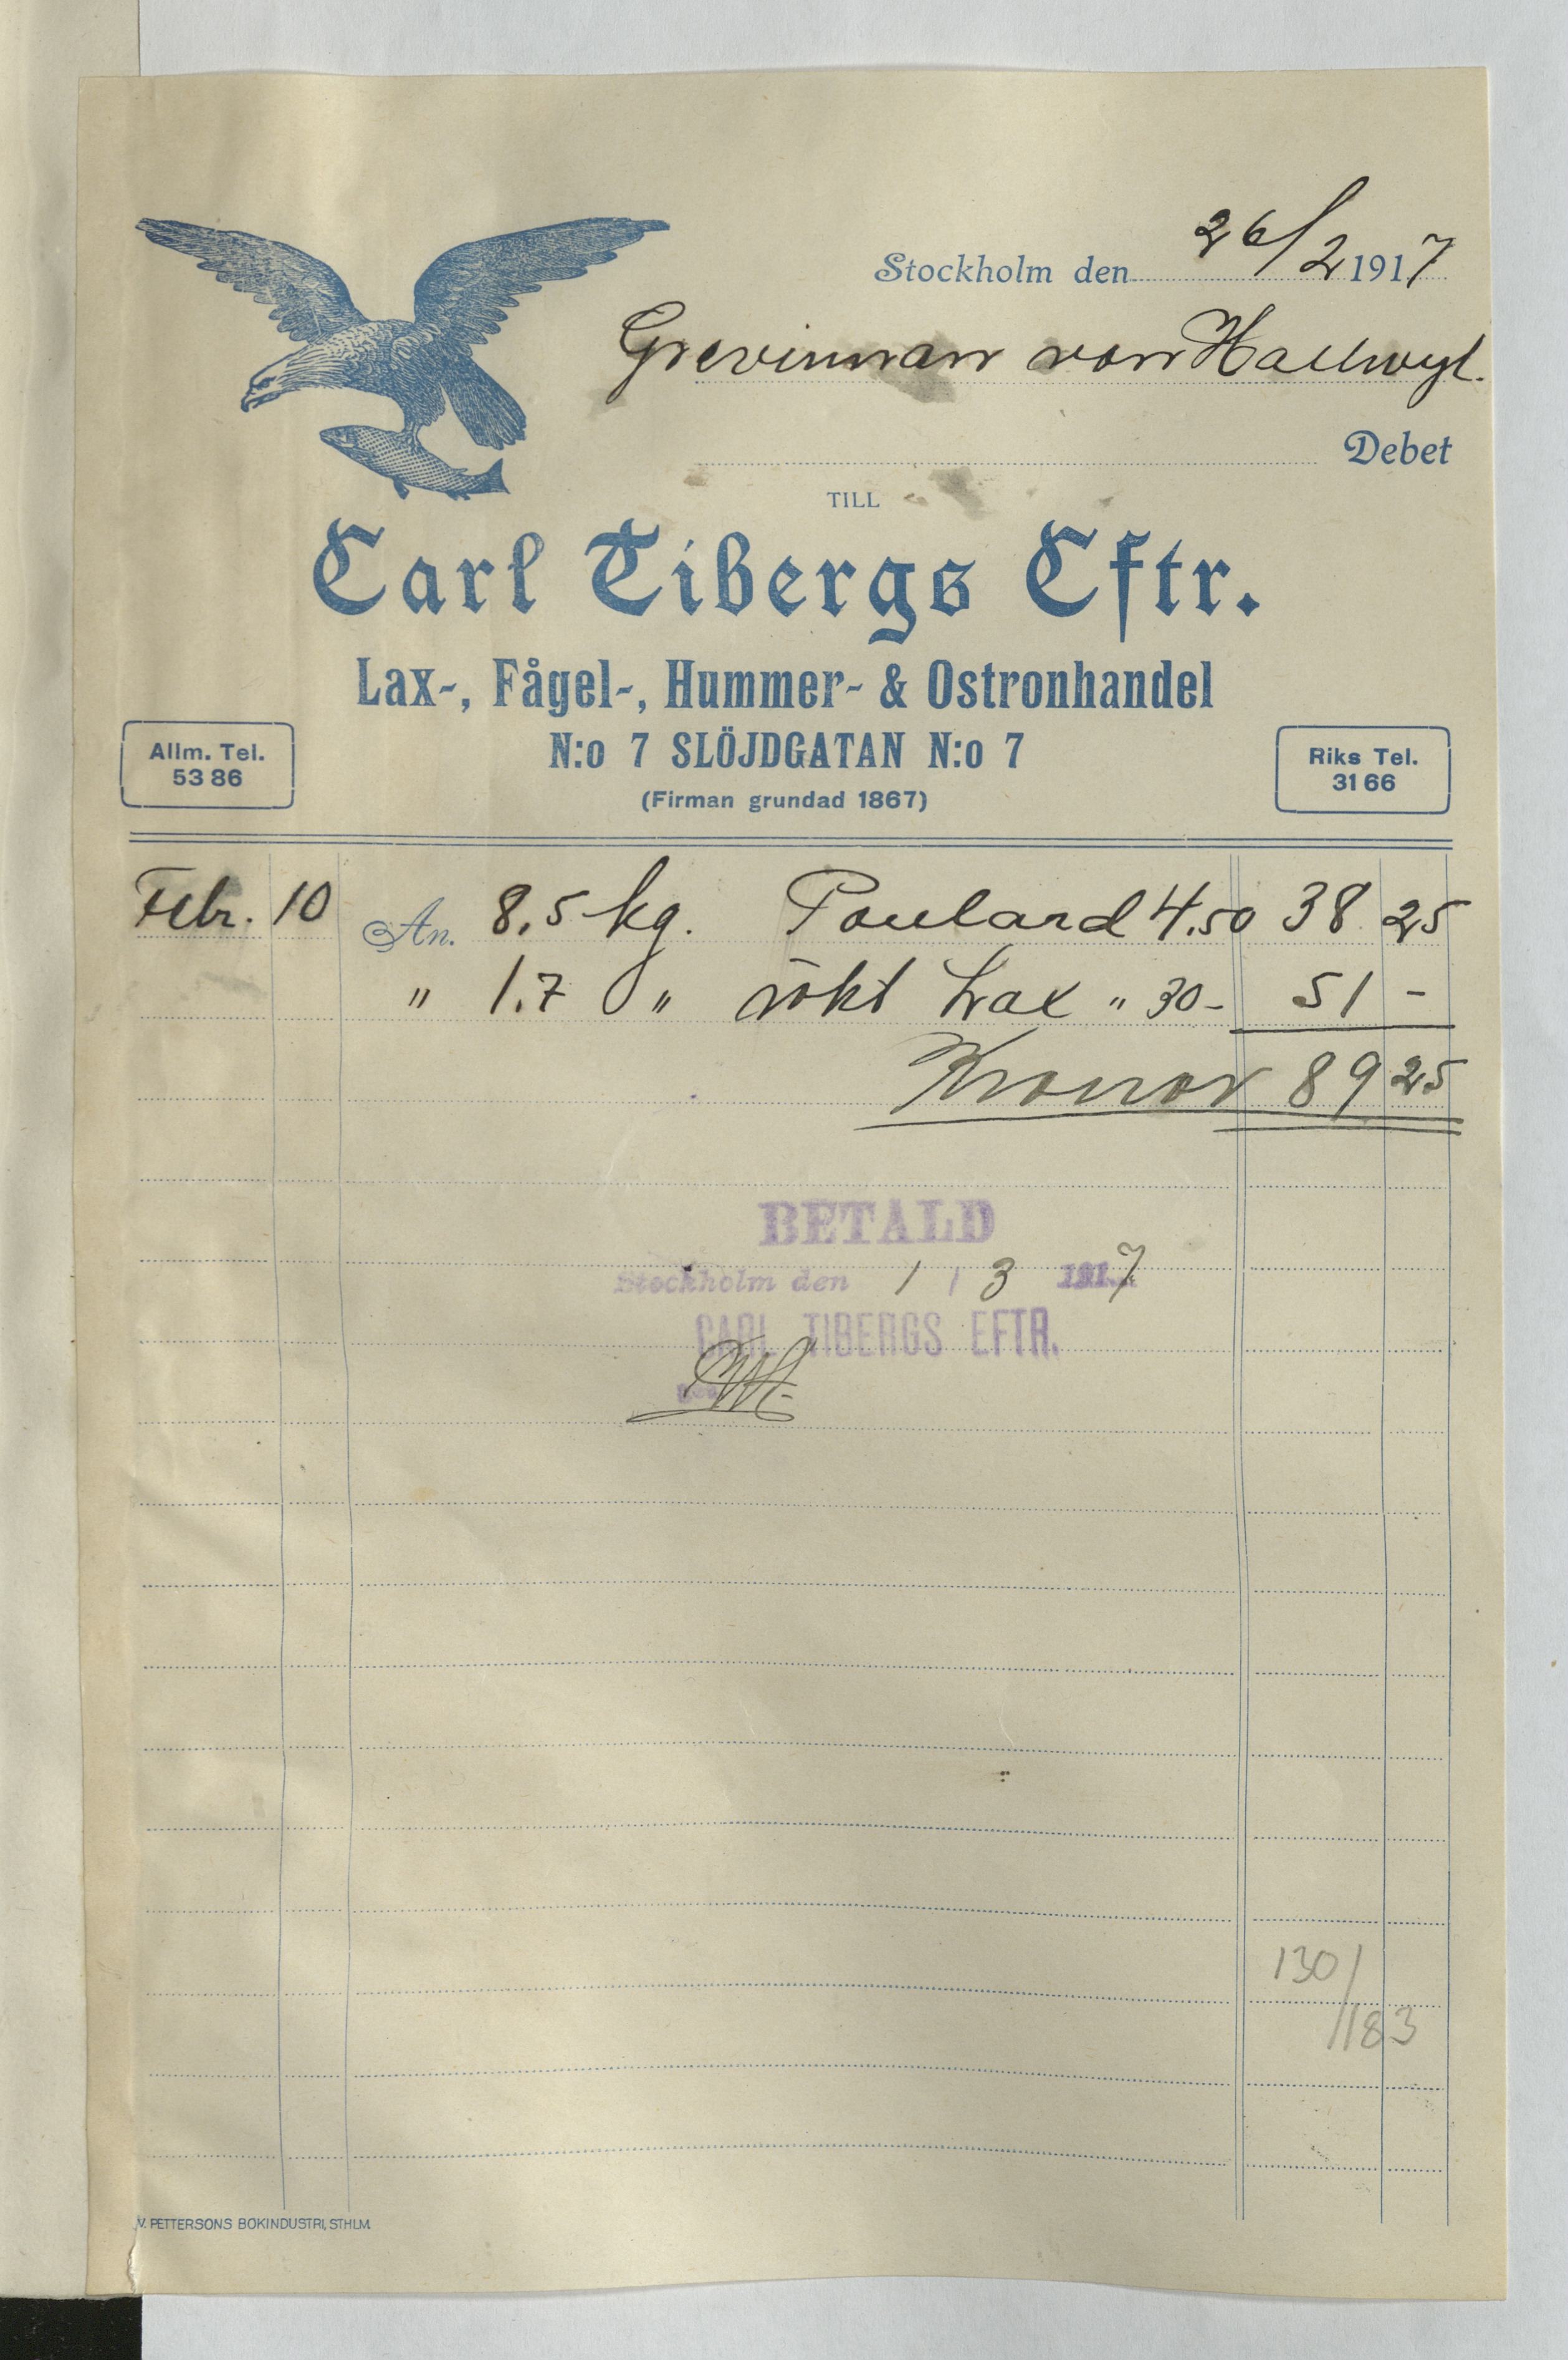 Stockholm den 26/2 1917
Grevinnan von Hallwyl.
Debet
TILL
Carl Tibergs Eftr.
Lax-, Fågel-, Hummer- & Ostronhandel
N:o 7 SLÖJDGATAN N:o 7
(Firman grundad 1867)
Allm. Tel.
53 86
Riks Tel.
31 66
Febr. 10 An. 8,5 kg. Poulard 4,50 38 25
" 1.7 " rökt Lax " 30- 51 -
Kronor 89 25
BETALD
Stockholm den 1 / 3 1917
CARL TIBERGS EFTR.
130/
/183
V. PETTERSONS BOKINDUSTRI, STHLM